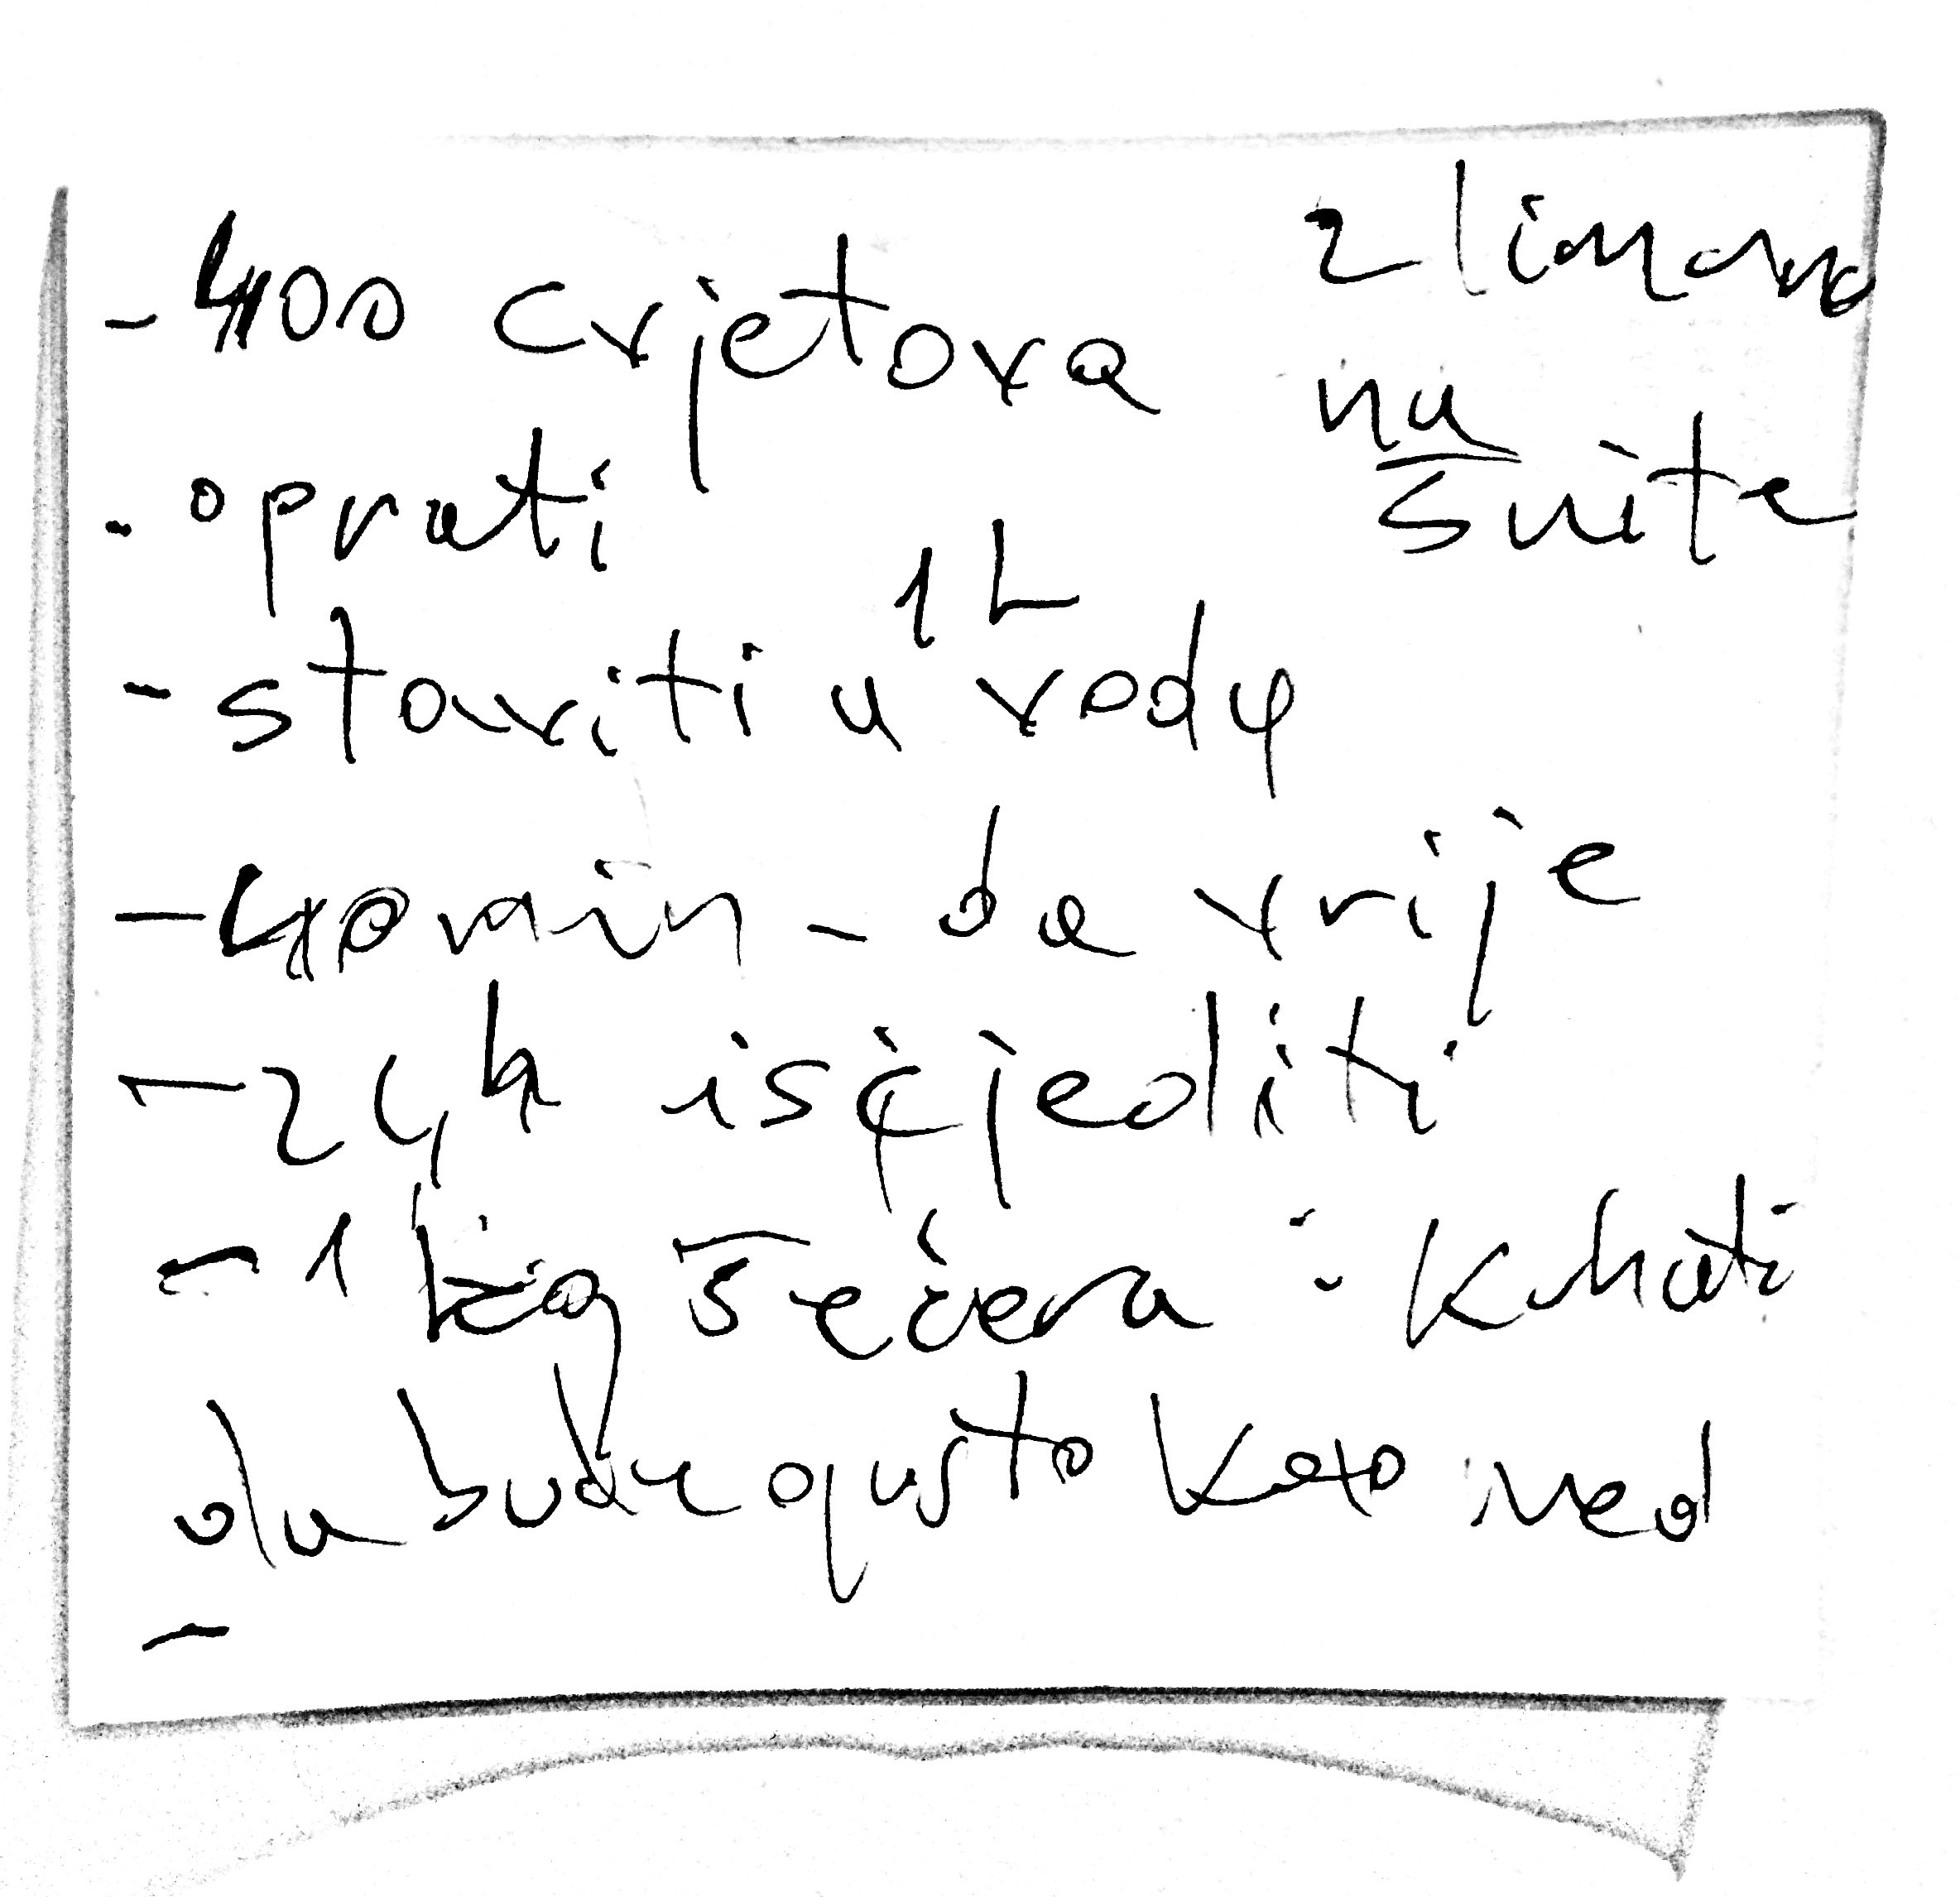 - 400 cvjetova
2 limuna
na
šnite
- oprati
1L
- staviti u vodu
- 40 min - da vrije
- 24h isčjediti
- 1 kg šećera i kuhati
da bude gusto kao med
-